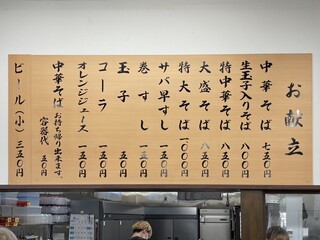 お献立
中華そば 七五〇円
生玉子入りそば 八〇〇円
特中華そば 八五〇円
大盛そば 八五〇円
特大そば 一、〇〇〇円
サバ早すし 一五〇円
巻すし 一五〇円
玉子 五〇円
コーラ 一五〇円
オレンジジュース 一五〇円
中華そば お持ち帰り出来ます。
容器代 五〇円
ビール(小) 三五〇円